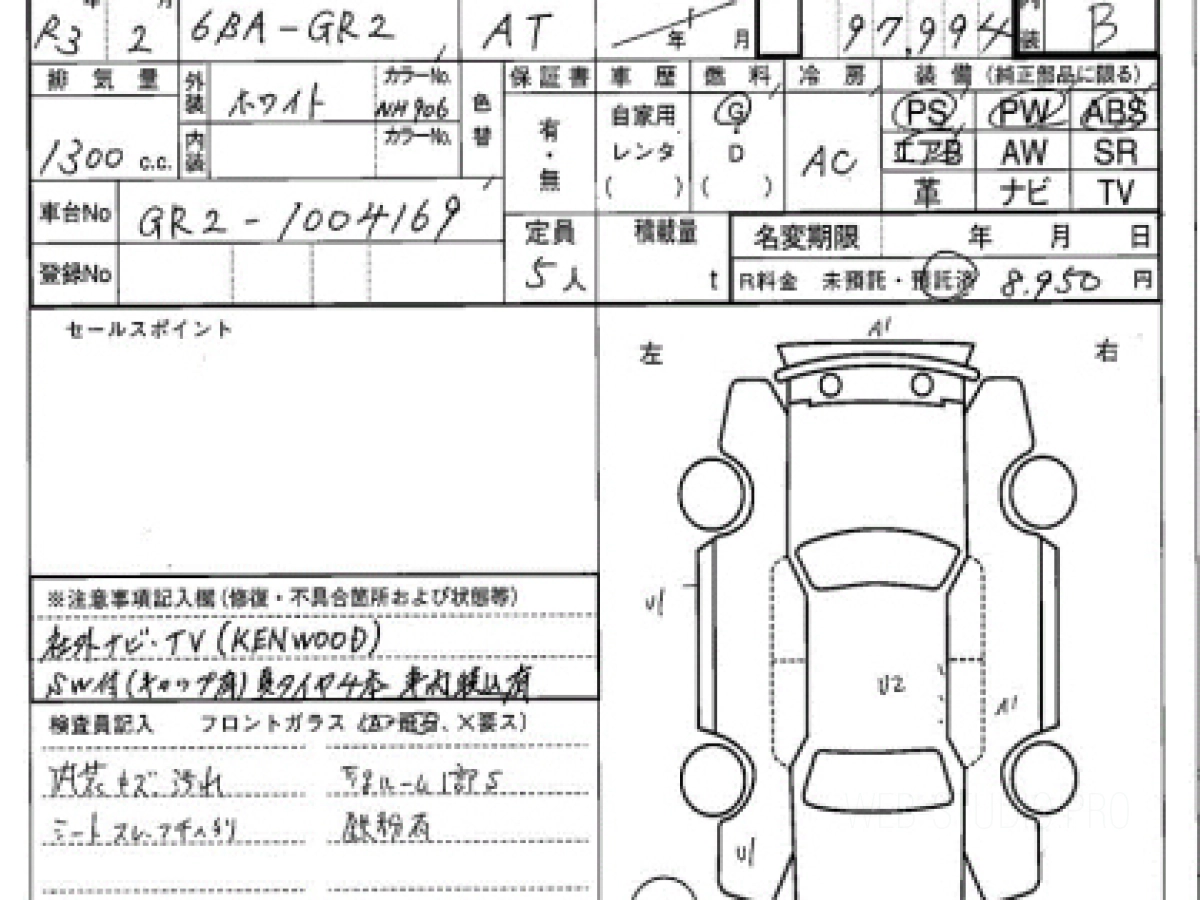 R3 年 2 月 6BA-GR2 AT 年 月 97,994 内装 B
排気量 外装 ホワイト カラーNo. NH906 色替 保証書 車歴 燃料 冷房 装備 (純正部品に限る)
1300 c.c. 内装 カラーNo. 有・無 自家用 G AC PS PW ABS
レンタ D エアB AW SR
( ) ( ) 革 ナビ TV
車台No GR2-1004169 定員 積載量 名変期限 年 月 日
登録No 5人 t R料金 未預託・預託済 8,950 円
セールスポイント
左 A1 右
U1
U2 A1
U1
※注意事項記入欄(修復・不具合箇所および状態等)
社外ナビ・TV (KENWOOD)
SW付(キャップ有) 夏タイヤ4本 車内積込有
検査員記入 フロントガラス
内装キズ 汚れ 下回り ルーム 1部S
シート スレ 鉄粉有